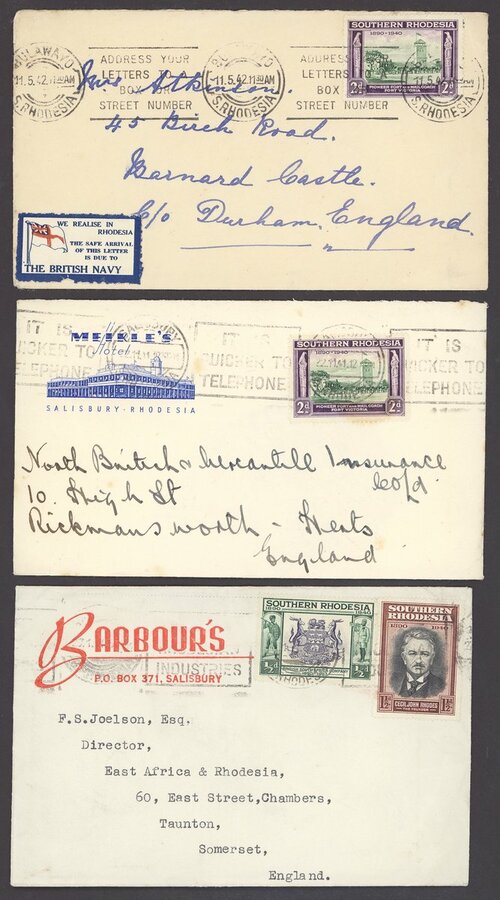 BULAWAYO
11.5.42.11 30AM
S. RHODESIA
ADDRESS YOUR
LETTERS
BOX OR
STREET NUMBER
BULAWAYO
11.5.42.11 30AM
S. RHODESIA
ADDRESS
LETTERS
BOX OR
STREET NUMBER
11.5.42
S. RHODESIA
SOUTHERN RHODESIA
1890-1940
2d PIONEER FORT AND MAIL COACH 2d
FORT VICTORIA
Mrs Atkinson.
45 Birch Road.
Barnard Castle.
C/o Durham. England.
WE REALISE IN
RHODESIA
THE SAFE ARRIVAL
OF THIS LETTER
IS DUE TO
THE BRITISH NAVY
IT IS
QUICKER TO
TELEPHONE
SALISBURY
MEIKLE'S
Hotel
SALISBURY - RHODESIA
IT IS
QUICKER TO
TELEPHONE
22.11.41.12
SOUTHERN RHODESIA
1890-1940
2d PIONEER FORT AND MAIL COACH 2d
FORT VICTORIA
IT IS
QUICKER TO
TELEPHONE
North British & Mercantile Insurance
Co/Ld
10. High St
Rickmansworth - Herts
England
BARBOUR'S
INDUSTRIES
P.O. BOX 371, SALISBURY
SOUTHERN RHODESIA
1890 1940
½d ½d
SOUTHERN
RHODESIA
1890 1940
CECIL JOHN RHODES
THE FOUNDER
1½d 1½d
F.S.Joelson, Esq.
Director,
East Africa & Rhodesia,
60, East Street,Chambers,
Taunton,
Somerset,
England.